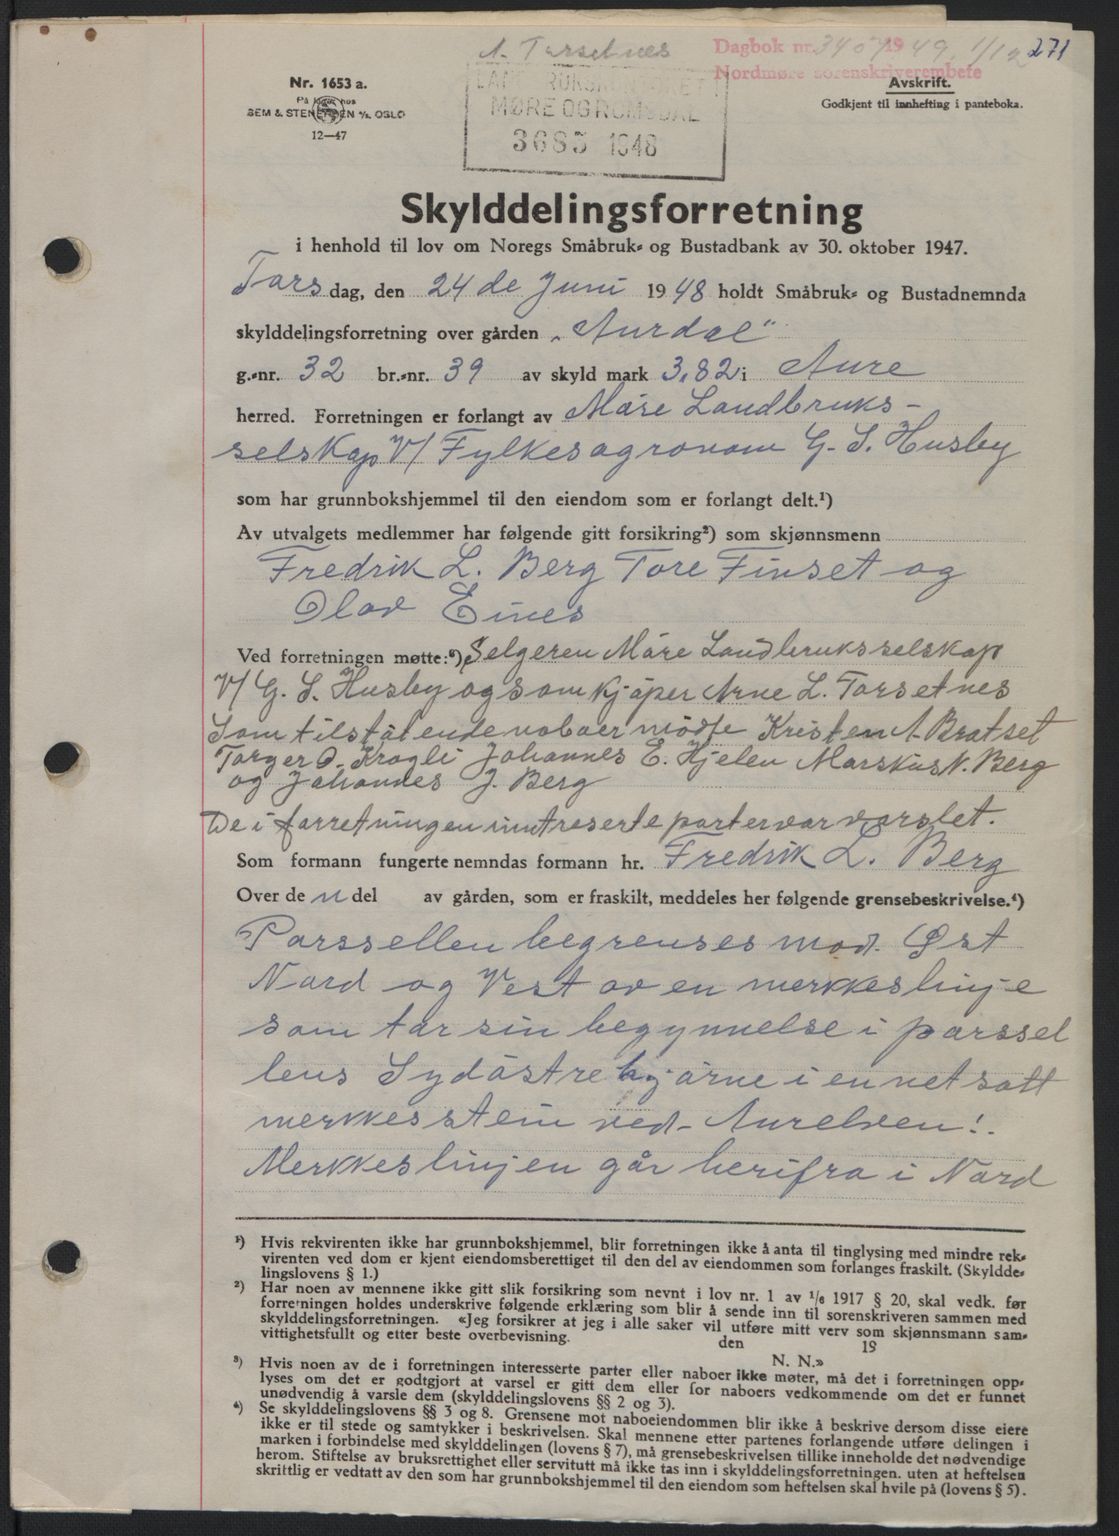 A. Tarsetnes
Dagbok nr. 3407 1949, 1/12
271
Nordmøre sorenskriverembete
Nr. 1653 a.
På lager hos
SEM & STENERSEN A/S. OSLO
12—47
MØRE OG ROMSDAL
3685 1948
Avskrift.
Godkjent til innhefting i panteboka.
Skylddelingsforretning
i henhold til lov om Noregs Småbruk- og Bustadbank av 30. oktober 1947.
Tors dag, den 24 de Juni 1948 holdt Småbruk- og Bustadnemnda
skylddelingsforretning over gården „Aurdal"
g.-nr. 32 br.-nr. 39 av skyld mark 3,82 i Aure
herred. Forretningen er forlangt av Møre Landbruks-
selskap V/ Fylkesagronom G. S. Husby
som har grunnbokshjemmel til den eiendom som er forlangt delt.¹)
Av utvalgets medlemmer har følgende gitt forsikring²) som skjønnsmenn
Fredrik L. Berg Tore Finset og
Olav Eines
Ved forretningen møtte:³) Selgeren Møre Landbruksselskap
V/ G. S. Husby og som kjøper Arne L. Tarsetnes
Som tilstøtende naboer mødte Kristen A. Bratset
Torger O. Krogli Johannes E. Hjelen Marskus N. Berg
og Johannes J. Berg
De i forretningen inntreserte parter var varslet.
Som formann fungerte nemndas formann hr. Fredrik L. Berg
Over de n del av gården, som er fraskilt, meddeles her følgende grensebeskrivelse.⁴)
Parssellen begrenses mod. Øst
Nord og Vest av en merkkeslinje
som tar sin begynnelse i parssel
lens Sydøstre hjørne i en netsatt
merkkesstein ved- Aurelven!.
Merkkeslinjen går herifra i Nord
¹) Hvis rekvirenten ikke har grunnbokshjemmel, blir forretningen ikke å anta til tinglysing med mindre rek-
virenten ved dom er kjent eiendomsberettiget til den del av eiendommen som forlanges fraskilt. (Skyldde-
lingslovens § 1.)
²) Har noen av mennene ikke gitt slik forsikring som nevnt i lov nr. 1 av 1/6 1917 § 20, skal vedk. før
forretningen holdes underskrive følgende erklæring som blir å sende inn til sorenskriveren sammen med
skylddelingsforretningen. «Jeg forsikrer at jeg i alle saker vil utføre mitt verv som skjønnsmann sam-
vittighetsfullt og etter beste overbevisning.
den 19
N. N.»
³) Hvis noen av de i forretningen interesserte parter eller naboer ikke møter, må det i forretningen opp-
lyses om det er godtgjort at varsel er gitt dem eller for naboers vedkommende om det er funnet
unødvendig å varsle dem (skylddelingslovens §§ 2 og 3).
⁴) Se skylddelingslovens §§ 3 og 8. Grensene mot naboeiendommen blir ikke å beskrive dersom disse eiere
ikke er til stede og samtykker i beskrivelsen. Skal mennene etter partenes forlangende utføre delingen i
marken i forbindelse med skylddelingen (lovens § 7), må grensebeskrivelsen tillike inneholde det nødvendige
herom. Stiftelse av bruksrettighet eller servitutt må ikke tas inn i skylddelingsforretningen. uten at heftelsen
skriftlig er vedtatt av den som har grunnbokshjemmel til den eiendom som heftelsen skal hvile på (lovens § 5).